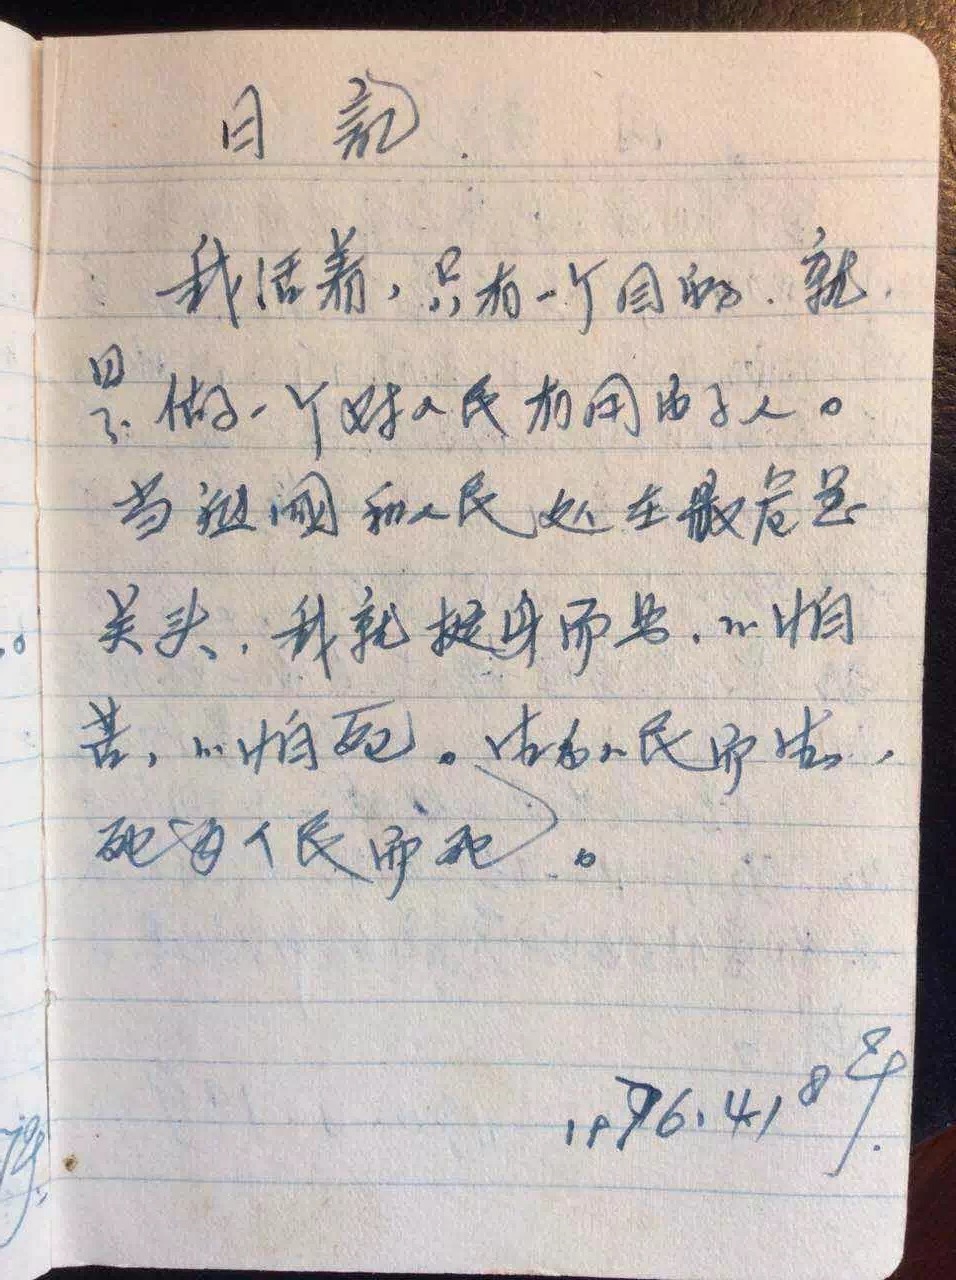 日记.
我活着，只有一个目的.就
是做一个对人民有用的人。
当祖国和人民处在最危急
关头,我就挺身而出,不怕
苦,不怕死。活为人民而活,
死为人民而死。
1976.4,8号.